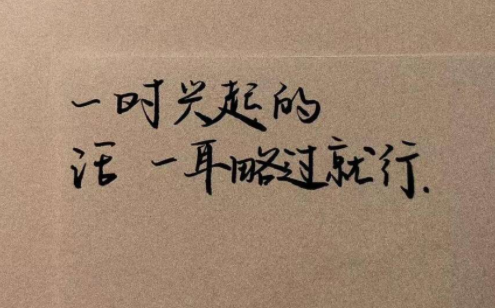 一时兴起的
话 一耳略过就行.